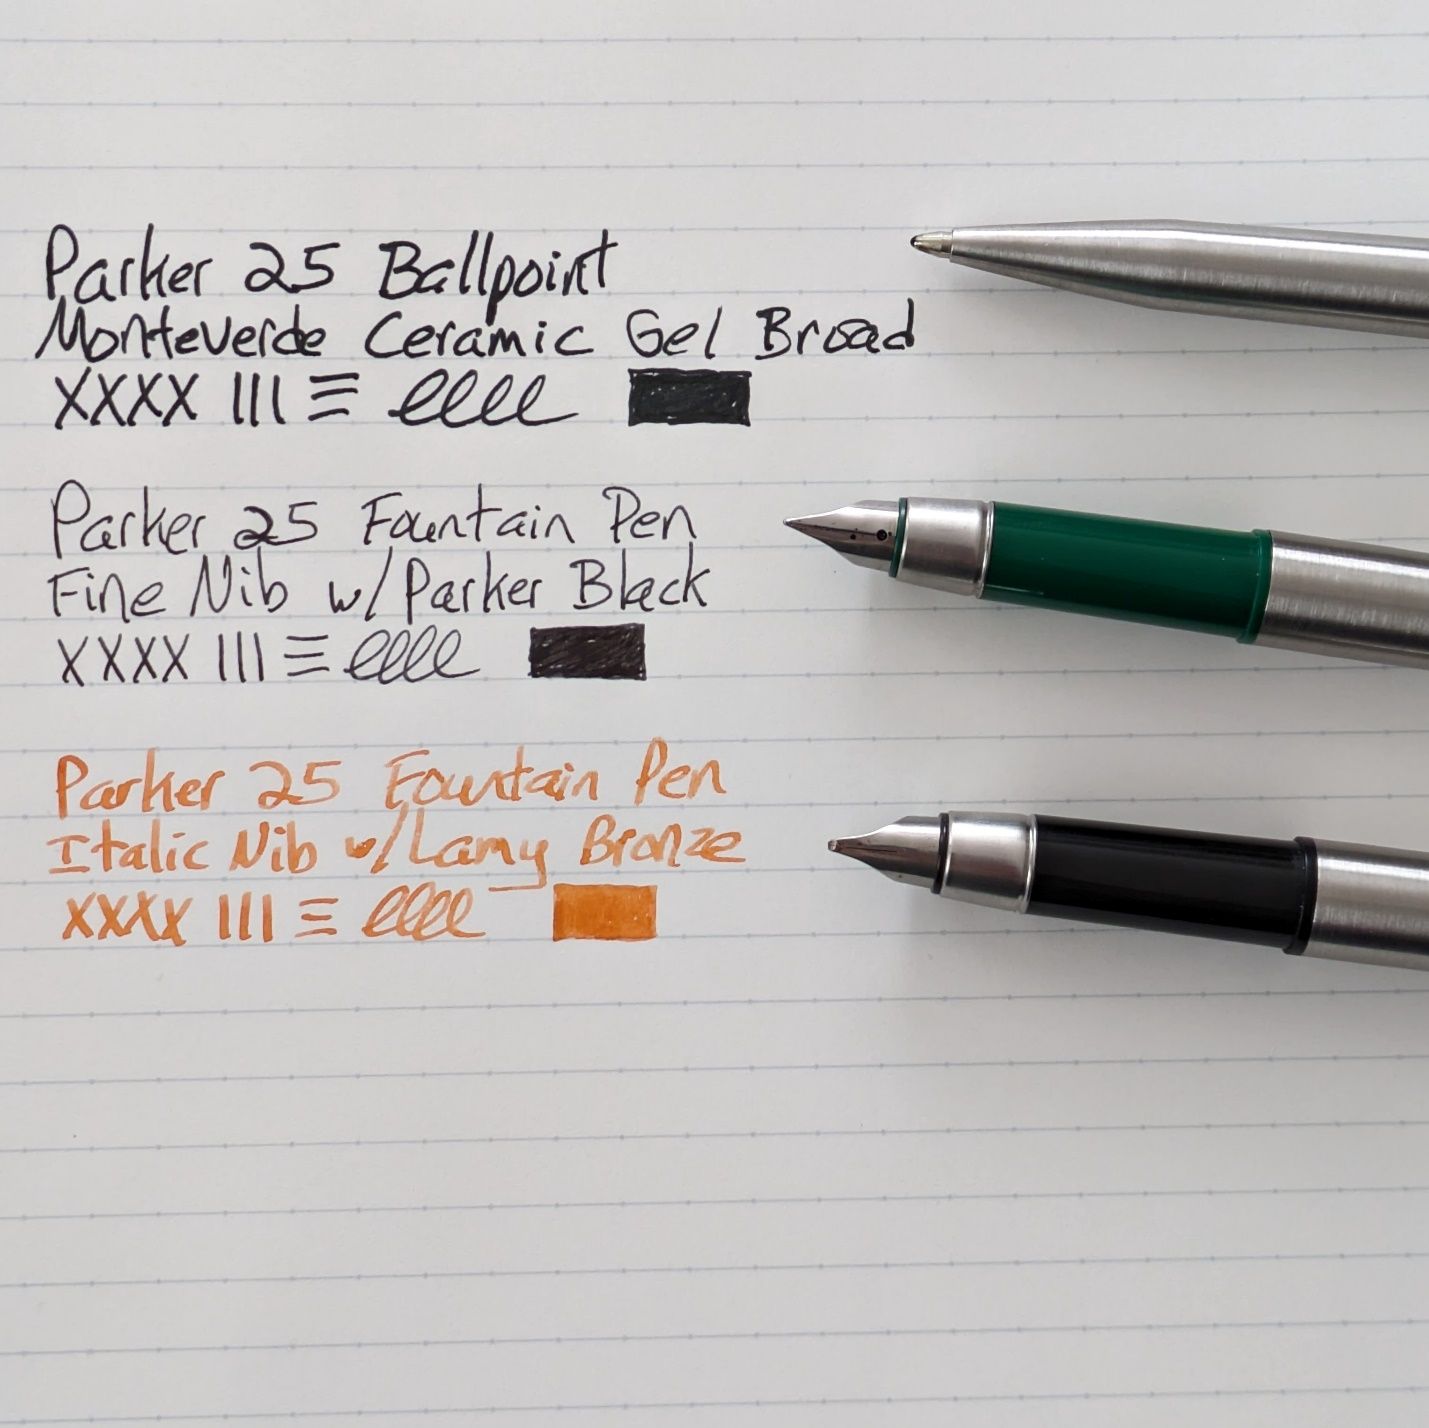 Parker 25 Ballpoint
Monteverde Ceramic Gel Broad
XXXX ||| ☰ llll
Parker 25 Fountain Pen
Fine Nib w/Parker Black
XXXX ||| ☰ llll
Parker 25 Fountain Pen
Italic Nib w/Lamy Bronze
XXXX ||| ☰ llll